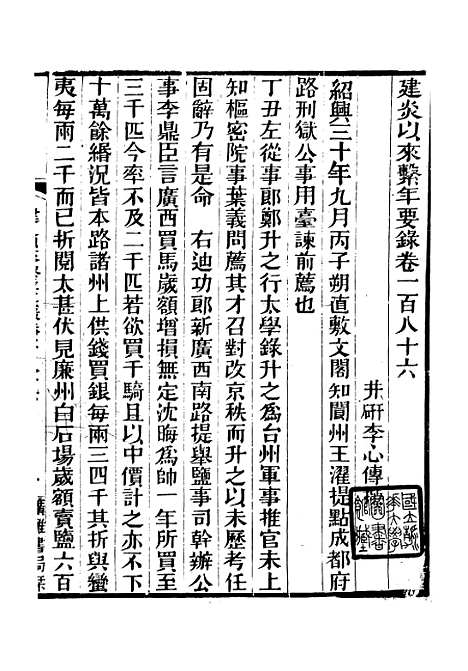 建炎以來繫年要錄卷一百八十六
井研李心傳撰
紹興三十年九月丙子朔直敷文閣知閬州王濯提點成都府
路刑獄公事用臺諫前薦也
丁丑左從事郎鄭升之行太學錄升之爲台州軍事推官未上
知樞密院事葉義問薦其才召對改京秩而升之以未歷考任
固辭乃有是命　右迪功郎新廣西南路提舉鹽事司幹辦公
事李鼎臣言廣西買馬歲額增損無定沈晦爲帥一年所買至
三千匹今率不及二千匹若欲買千騎且以中價計之亦不下
十萬餘緡況皆本路諸州上供錢買銀每兩三四千其折與蠻
夷每兩二千而已折閱太甚伏見廉州白石場歲額賣鹽六百
廣雅書局栞